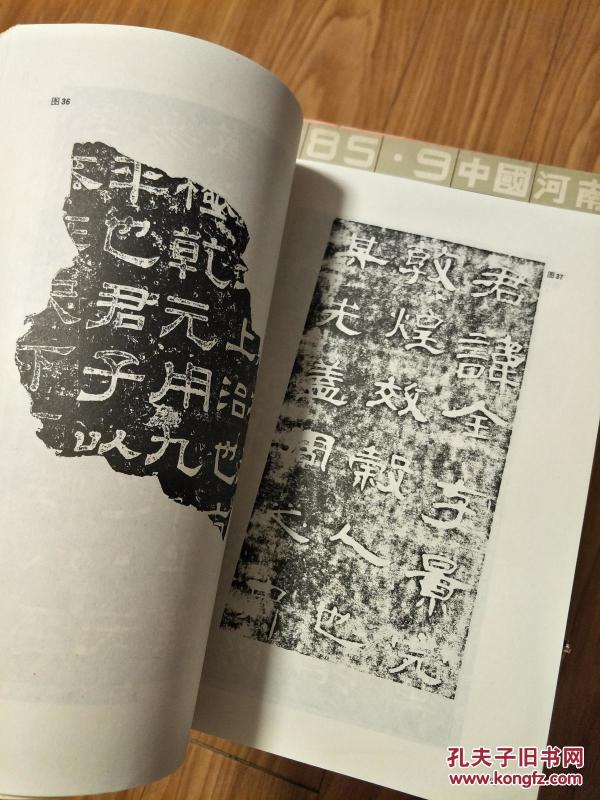 图36
上治也
極乾元用九
平也君子以
下
85·9中國河南
图37
君諱全字景完
敦煌效穀人也
其先蓋周
孔夫子旧书网
www.kongfz.com